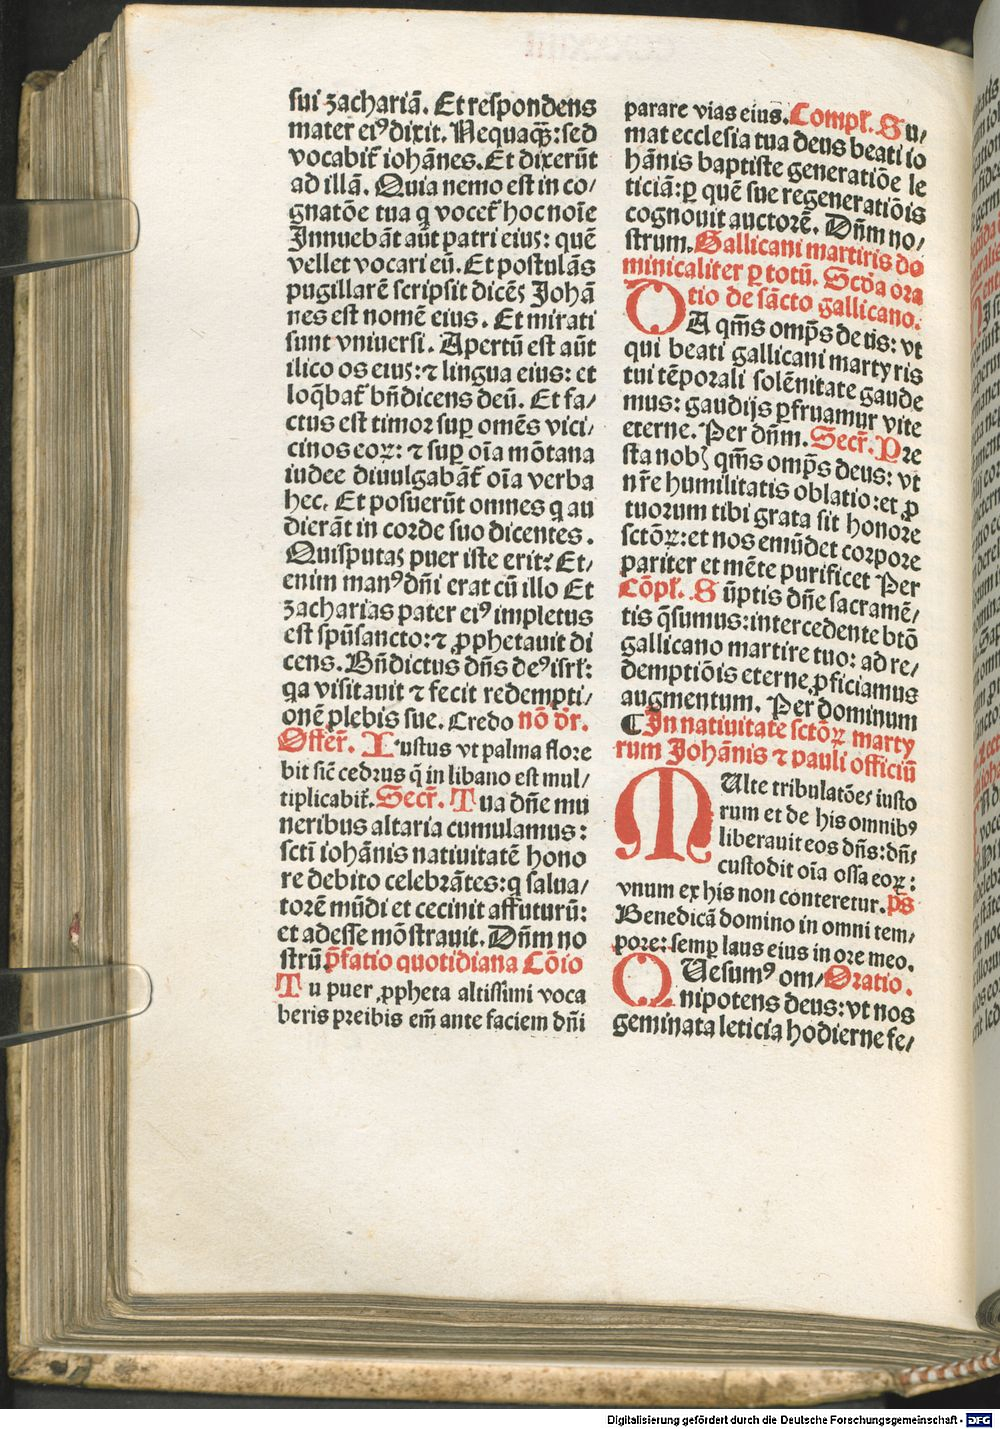 sui zachariā. Et respondens
mater eiꝰ dixit. Nequaqꝫ: sed
vocabit᷑ iohānes. Et dixerūt
ad illā. Quia nemo est in co/
gnatōe tua q vocet᷑ hoc noīe
Innuebāt aūt patri eius: quē
vellet vocari eū. Et postulās
pugillarē scripsit dicēs Johā
nes est nomē eius. Et mirati
sunt vniuersi. Apertū est aūt
ilico os eius: ⁊ lingua eius: et
loq̄bat᷑ bn̄dicens deū. Et fa/
ctus est timor suꝑ omēs vici/
cinos eoꝝ: ⁊ suꝑ oīa mōtana
iudee diuulgabāt᷑ oīa verba
hec. Et posuerūt omnes q au
dierāt in corde suo dicentes.
Quisputas puer iste erit? Et/
enim manꝰ dn̄i erat cū illo Et
zacharias pater eiꝰ impletus
est spūsancto: ⁊ ꝓphetauit di
cens. Bn̄dictus dn̄s deꝰ isrl᷑:
qa visitauit ⁊ fecit redempti/
onē plebis sue. Credo nō dr̄.
Offer̄. Iustus vt palma flore
bit sic̄ cedrus q̄ in libano est mul/
tiplicabit᷑. Secr̄. Tua dn̄e mu
neribus altaria cumulamus:
sctī iohānis natiuitatē hono
re debito celebrātes: q salua/
torē mūdi et cecinit affuturū:
et adesse mōstrauit. Dn̄m no
strū p̄fatio quotidiana Cōio
Tu puer ꝓpheta altissimi voca
beris preibis em̄ ante faciem dn̄i
parare vias eius. Compl᷑. Su/
mat ecclesia tua deus beati io
hānis baptiste generatiōe le
ticiā: ꝑ quē sue regeneratiōis
cognouit auctorē. Dn̄m no/
strum. Gallicani martiris do
minicaliter ꝑ totū. Scd̄a ora
tio de sācto gallicano.
DA qm̄s omp̄s de us: vt
qui beati gallicani martyris
tui tēporali solēnitate gaude
mus: gaudijs ꝑfruamur vite
eterne. Per dn̄m. Secr̄. Pre
sta nobꝭ qm̄s omp̄s deus: vt
nr̄e humilitatis oblatio: et ꝓ
tuorum tibi grata sit honore
sctōꝝ: et nos emūdet corpore
pariter et mēte purificet Per
Cōpl᷑. Sūptis dn̄e sacramē/
tis q̄sumus: intercedente btō
gallicano martire tuo: ad re/
demptiōis eterne ꝓficiamus
augmentum. Per dominum
¶ In natiuitate sctōꝝ marty
rum Johānis ⁊ pauli officiū
MUlte tribulatōes iusto
rum et de his omnibꝰ
liberauit eos dn̄s: dn̄s
custodit oīa ossa eoꝝ:
vnum ex his non conteretur. ps̄
Benedicā domino in omni tem/
pore: semꝑ laus eius in ore meo.
QUesumꝰ om/ Oratio.
nipotens deus: vt nos
geminata leticia hodierne fe/
Digitalisierung gefördert durch die Deutsche Forschungsgemeinschaft - DFG